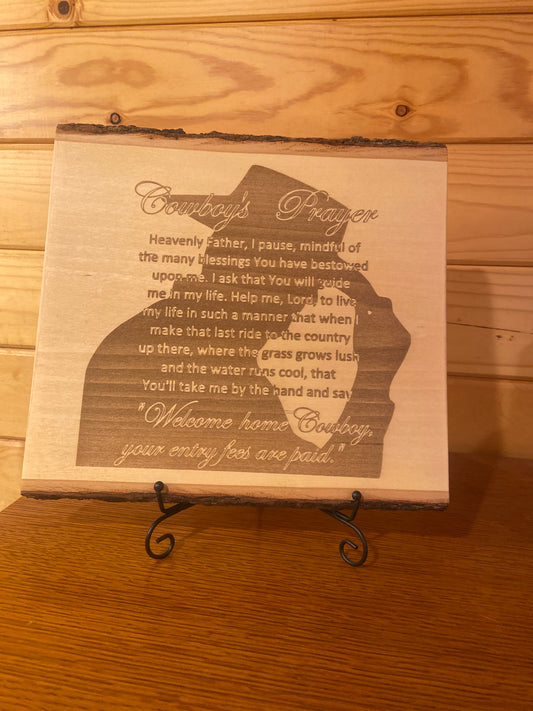 Cowboy's Prayer
Heavenly Father, I pause, mindful of
the many blessings You have bestowed
upon me. I ask that You will guide
me in my life. Help me, Lord, to live
my life in such a manner that when I
make that last ride to the country
up there, where the grass grows lush
and the water runs cool, that
You'll take me by the hand and say
"Welcome home Cowboy,
your entry fees are paid."